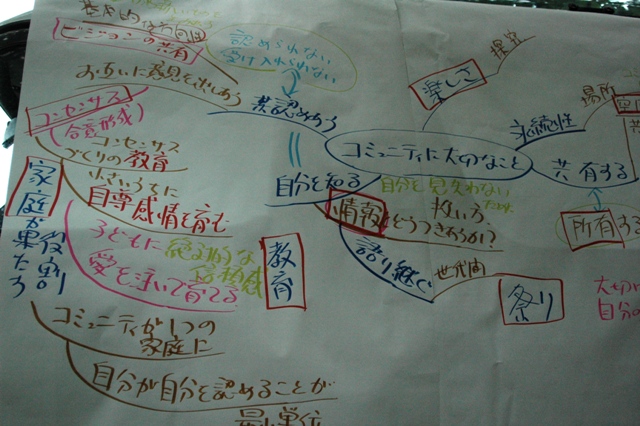 ビジョンの共有
認められない
受け入れられない
お互いに意見を出しあう
コンセンサス
(合意形成)
共認めあう
コンセンサス
づくりの教育
小さいうちに
自尊感情を育む
子どもに
愛を注いで育てる
家庭が果たす
役割
教育
コミュニティが1つの
家庭に
自分が自分を認めることが
自分を知る
自分を見失わない
ため
情報
扱い方
どうつきあうか?
語り継ぐ
世代間
祭り
コミュニティに大切なこと
楽しさ
場所
永続性
共有する
所有する
大切
自分の